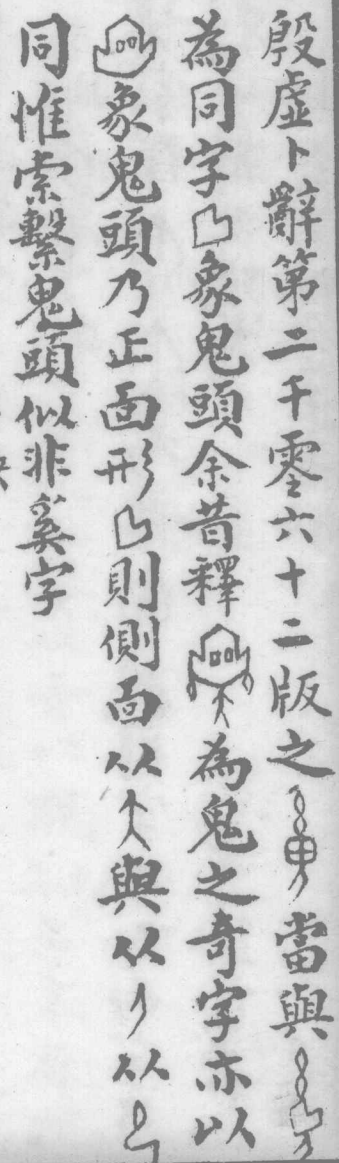 殷虛卜辭第二千零六十二版之當與
為同字象鬼頭余昔釋為鬼之奇字亦以
象鬼頭乃正面形則側面从與从从
同惟索繫鬼頭似非奚字